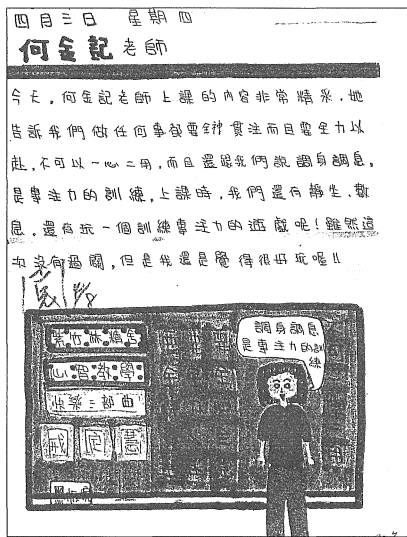 四月三日 星期四
何金記老師
今天，何金記老師上課的內容非常精彩，她
告訴我們做任何事都要全神貫注而且要全力以
赴，不可以一心二用，而且還跟我們說調身調息，
是專注力的訓練，上課時，我們還有靜坐、數
息，還有玩一個訓練專注力的遊戲呢！雖然這
次沒有過關，但是我還是覺得很好玩喔!!
調身調息
是專注力的訓
練
紫竹林精舍
心智教學
快樂三部曲
戒 定 慧